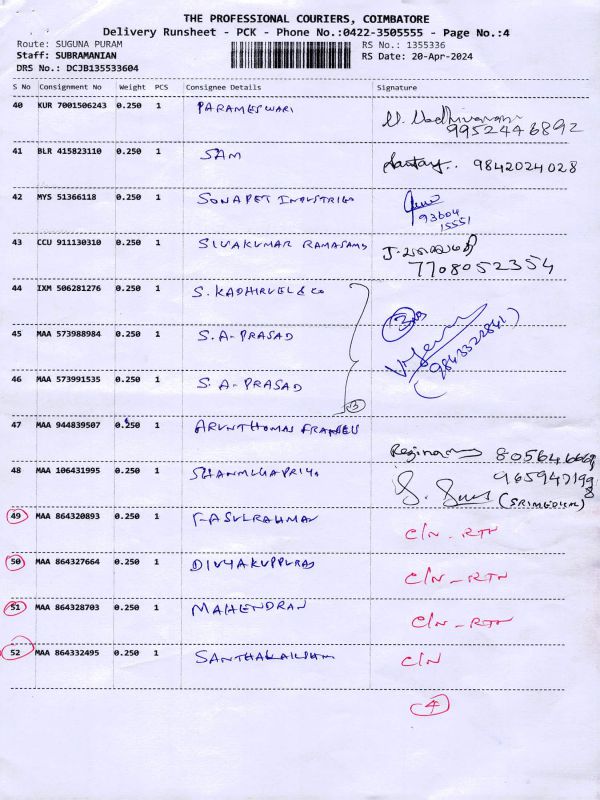 THE PROFESSIONAL COURIERS, COIMBATORE
Delivery Runsheet - PCK - Phone No.:0422-3505555 - Page No.:4
Route: SUGUNA PURAM RS No.: 1355336
Staff: SUBRAMANIAN RS Date: 20-Apr-2024
DRS No.: DCJB135533604
S No Consignment No Weight PCS Consignee Details Signature
40 KUR 7001506243 0.250 1 PARAMESWARI
9952446892
41 BLR 415823110 0.250 1 SAM 9842024028
42 MYS 51366118 0.250 1 SONAPET INDUSTRIES
93604
15551
43 CCU 911130310 0.250 1 SIVAKUMAR RAMASAMY
7708052354
44 IXM 506281276 0.250 1 S. KADHIRVEL & CO
45 MAA 573988984 0.250 1 S. A-PRASAD
9843322841
46 MAA 573991535 0.250 1 S. A-PRASAD
3
47 MAA 944839507 0.250 1 ARUNTHOMAS
48 MAA 106431995 0.250 1 SHANMUGAPRIYA
(SRI MEDICAL)
49 MAA 864320893 0.250 1 C/N - RTN
50 MAA 864327664 0.250 1 C/N - RTN
51 MAA 864328703 0.250 1 MAHENDRAN C/N - RTN
52 MAA 864332495 0.250 1 C/N
4